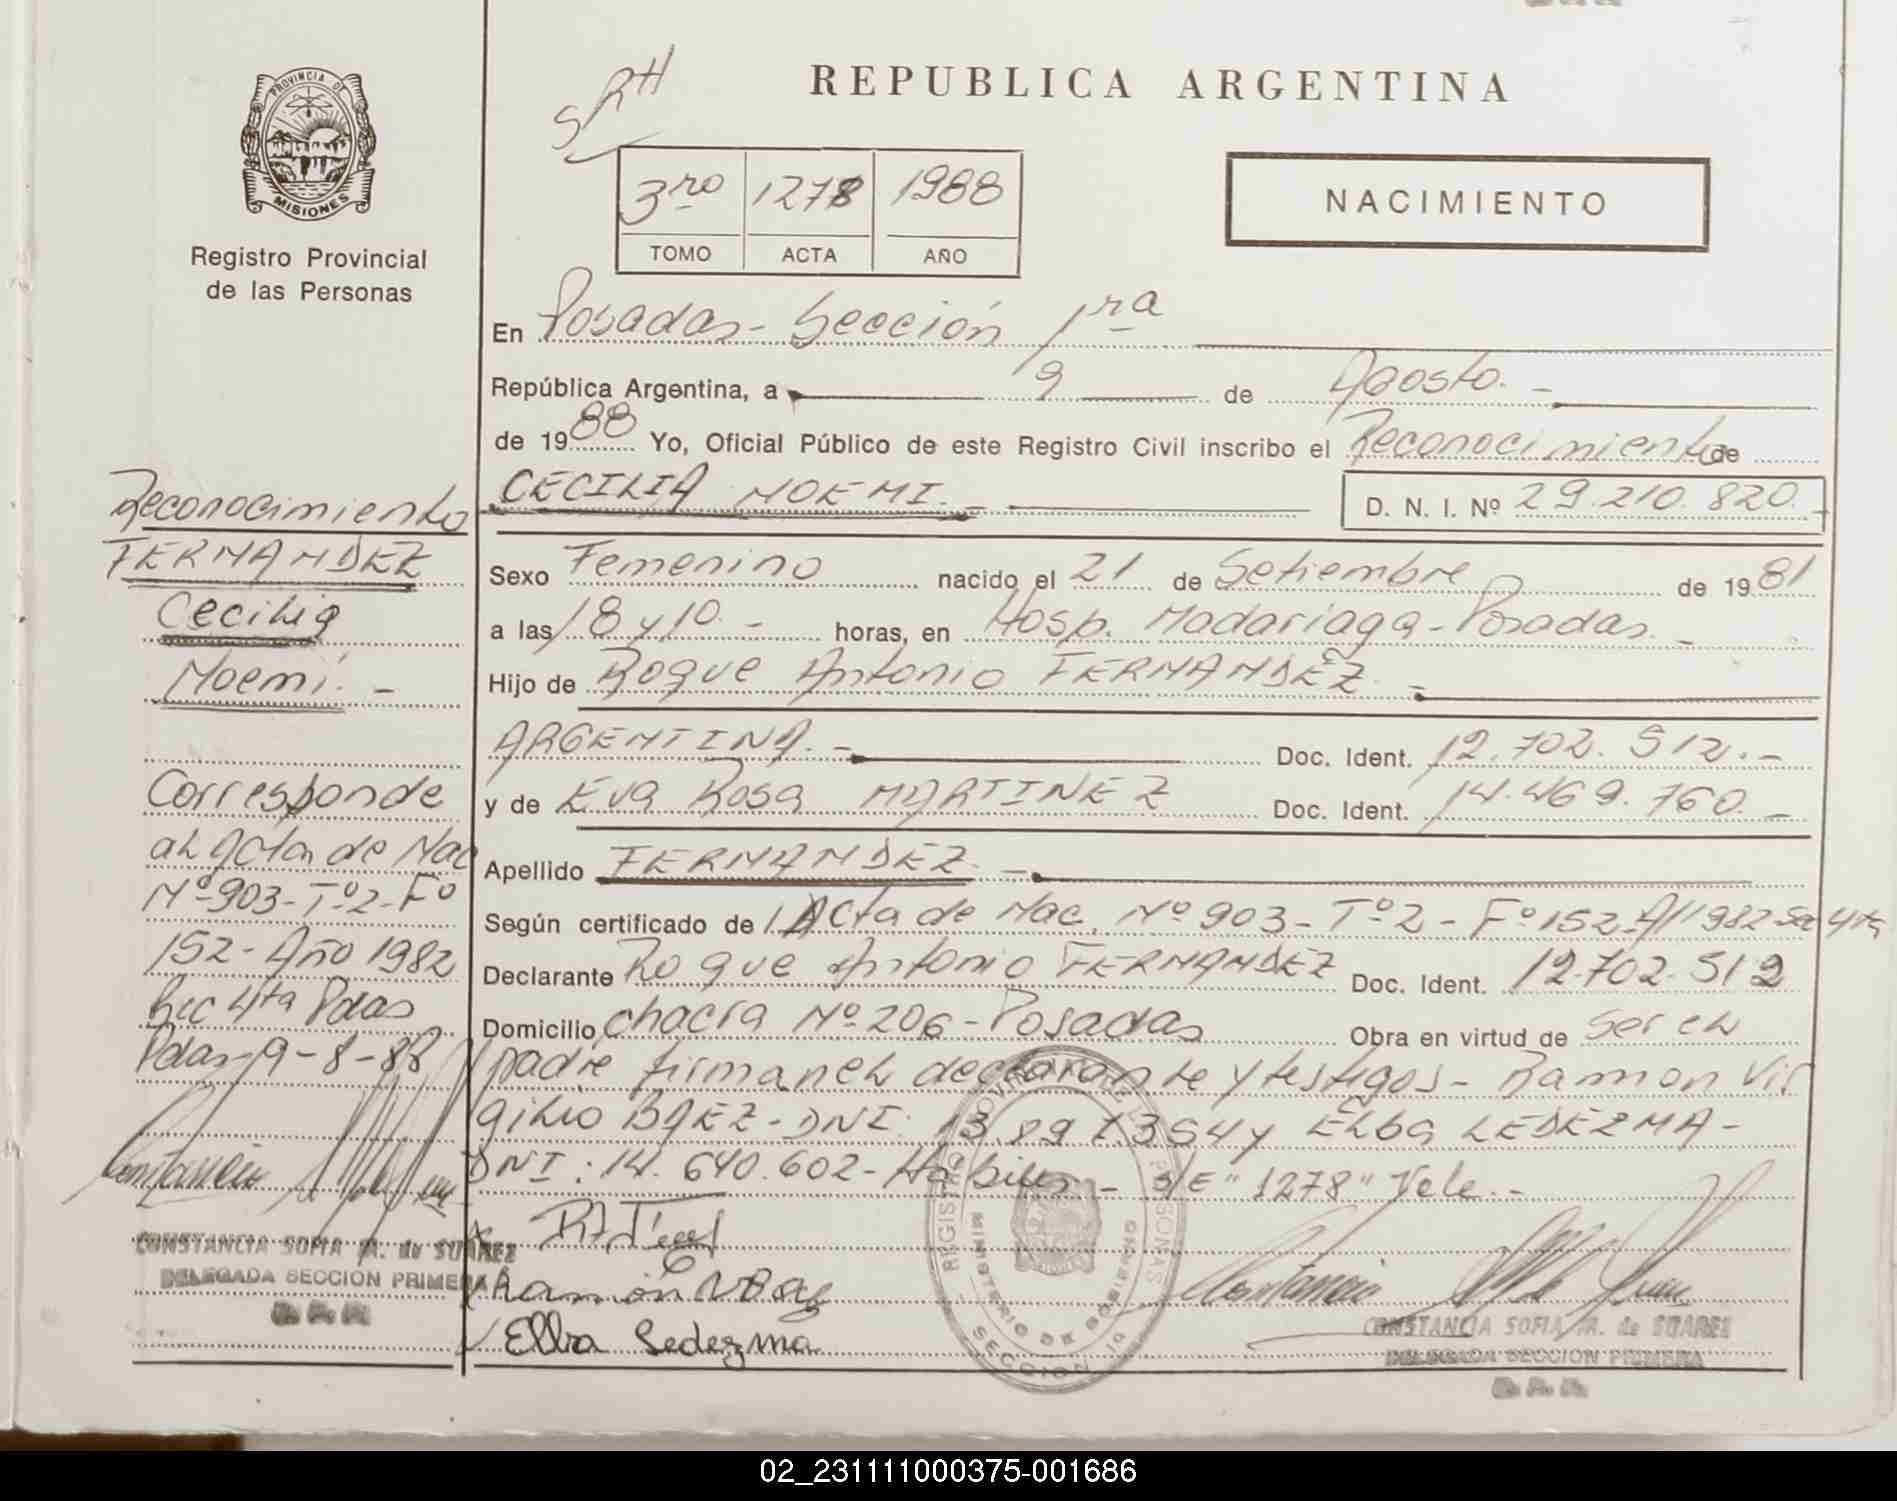 SRH
REPUBLICA ARGENTINA
PROVINCIA DE
MISIONES
Registro Provincial
de las Personas
3ro 1278 1988
TOMO ACTA AÑO
NACIMIENTO
En Posadas - Sección 1ra
República Argentina, a 9 de Agosto. -
de 1988 Yo, Oficial Público de este Registro Civil inscribo el Reconocimiento de
CECILIA NOEMI. D. N. I. Nº 29.210.820. -
Sexo Femenino nacido el 21 de Setiembre de 1981
a las 18 y 10. - horas, en Hosp. Madariaga - Posadas. -
Hijo de Roque Antonio FERNANDEZ. -
ARGENTINA. - Doc. Ident. 12.702.512. -
y de Eva Rosa MARTINEZ Doc. Ident. 14.469.760. -
Apellido FERNANDEZ. -
Según certificado de Acta de Nac. Nº 903 - Tº 2 - Fº 152 A/1982 Sec 4ta
Declarante Roque Antonio FERNANDEZ Doc. Ident. 12.702.512
Domicilio chacra Nº 206 - Posadas Obra en virtud de ser el
padre firman el declarante y testigos - Ramon Vir
gilio BAEZ - DNI: 13.897.354 y Elba LEDEZMA -
DNI: 14.640.602 - Habiles - S/E "1278" Vele. -
Ramón V Baez
Elba Ledezma
Reconocimiento
FERNANDEZ
Cecilia
Noemi. -
Corresponde
al acta de Nac
Nº 903 - Tº 2 - Fº
152 - Año 1982
Sec 4ta Pdas
Pdas 9-8-88
CONSTANCIA SOFIA M. de SUAREZ
DELEGADA SECCION PRIMERA
REGISTRO PROVINCIAL DE PERSONAS
MINISTERIO DE GOBIERNO
SECCION 1a
CONSTANCIA SOFIA M. de SUAREZ
DELEGADA SECCION PRIMERA
02_231111000375-001686